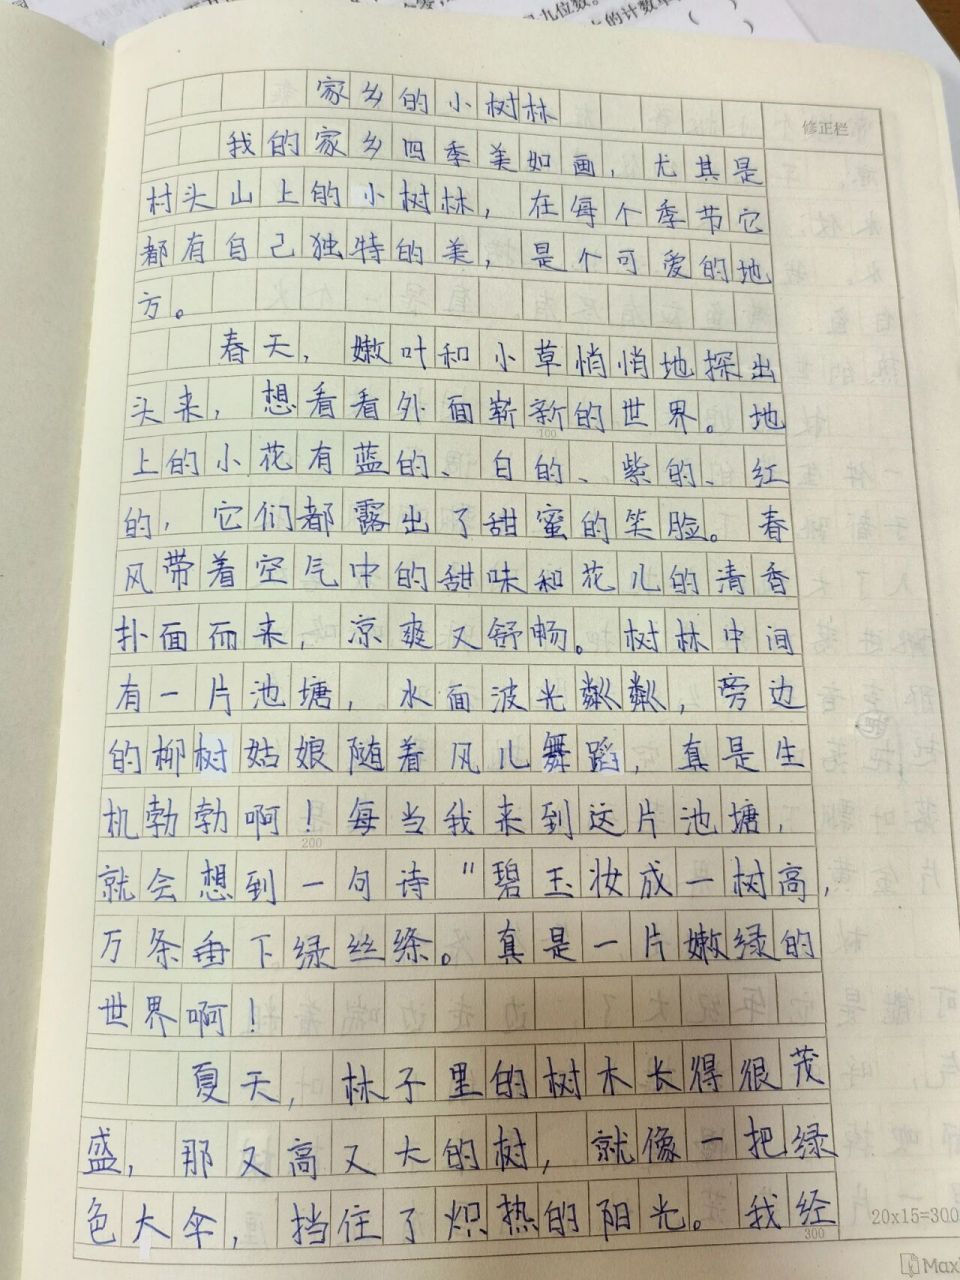 九位数。
的计数单
(    )
家乡的小树林
修正栏
我的家乡四季美如画，尤其是
村头山上的小树林，在每个季节它
都有自己独特的美，是个可爱的地
方。
春天，嫩叶和小草悄悄地探出
头来，想看看外面崭新的世界。地
100
上的小花有蓝的、白的、紫的、红
的，它们都露出了甜蜜的笑脸。春
风带着空气中的甜味和花儿的清香
扑面而来，凉爽又舒畅。树林中间
有一片池塘，水面波光粼粼，旁边
的柳树姑娘随着风儿舞蹈，真是生
机勃勃啊！每当我来到这片池塘，
200
就会想到一句诗"碧玉妆成一树高，
万条垂下绿丝绦。真是一片嫩绿的
世界啊！
夏天，林子里的树木长得很茂
盛，那又高又大的树，就像一把绿
色大伞，挡住了炽热的阳光。我经
300
20x15=300
Max